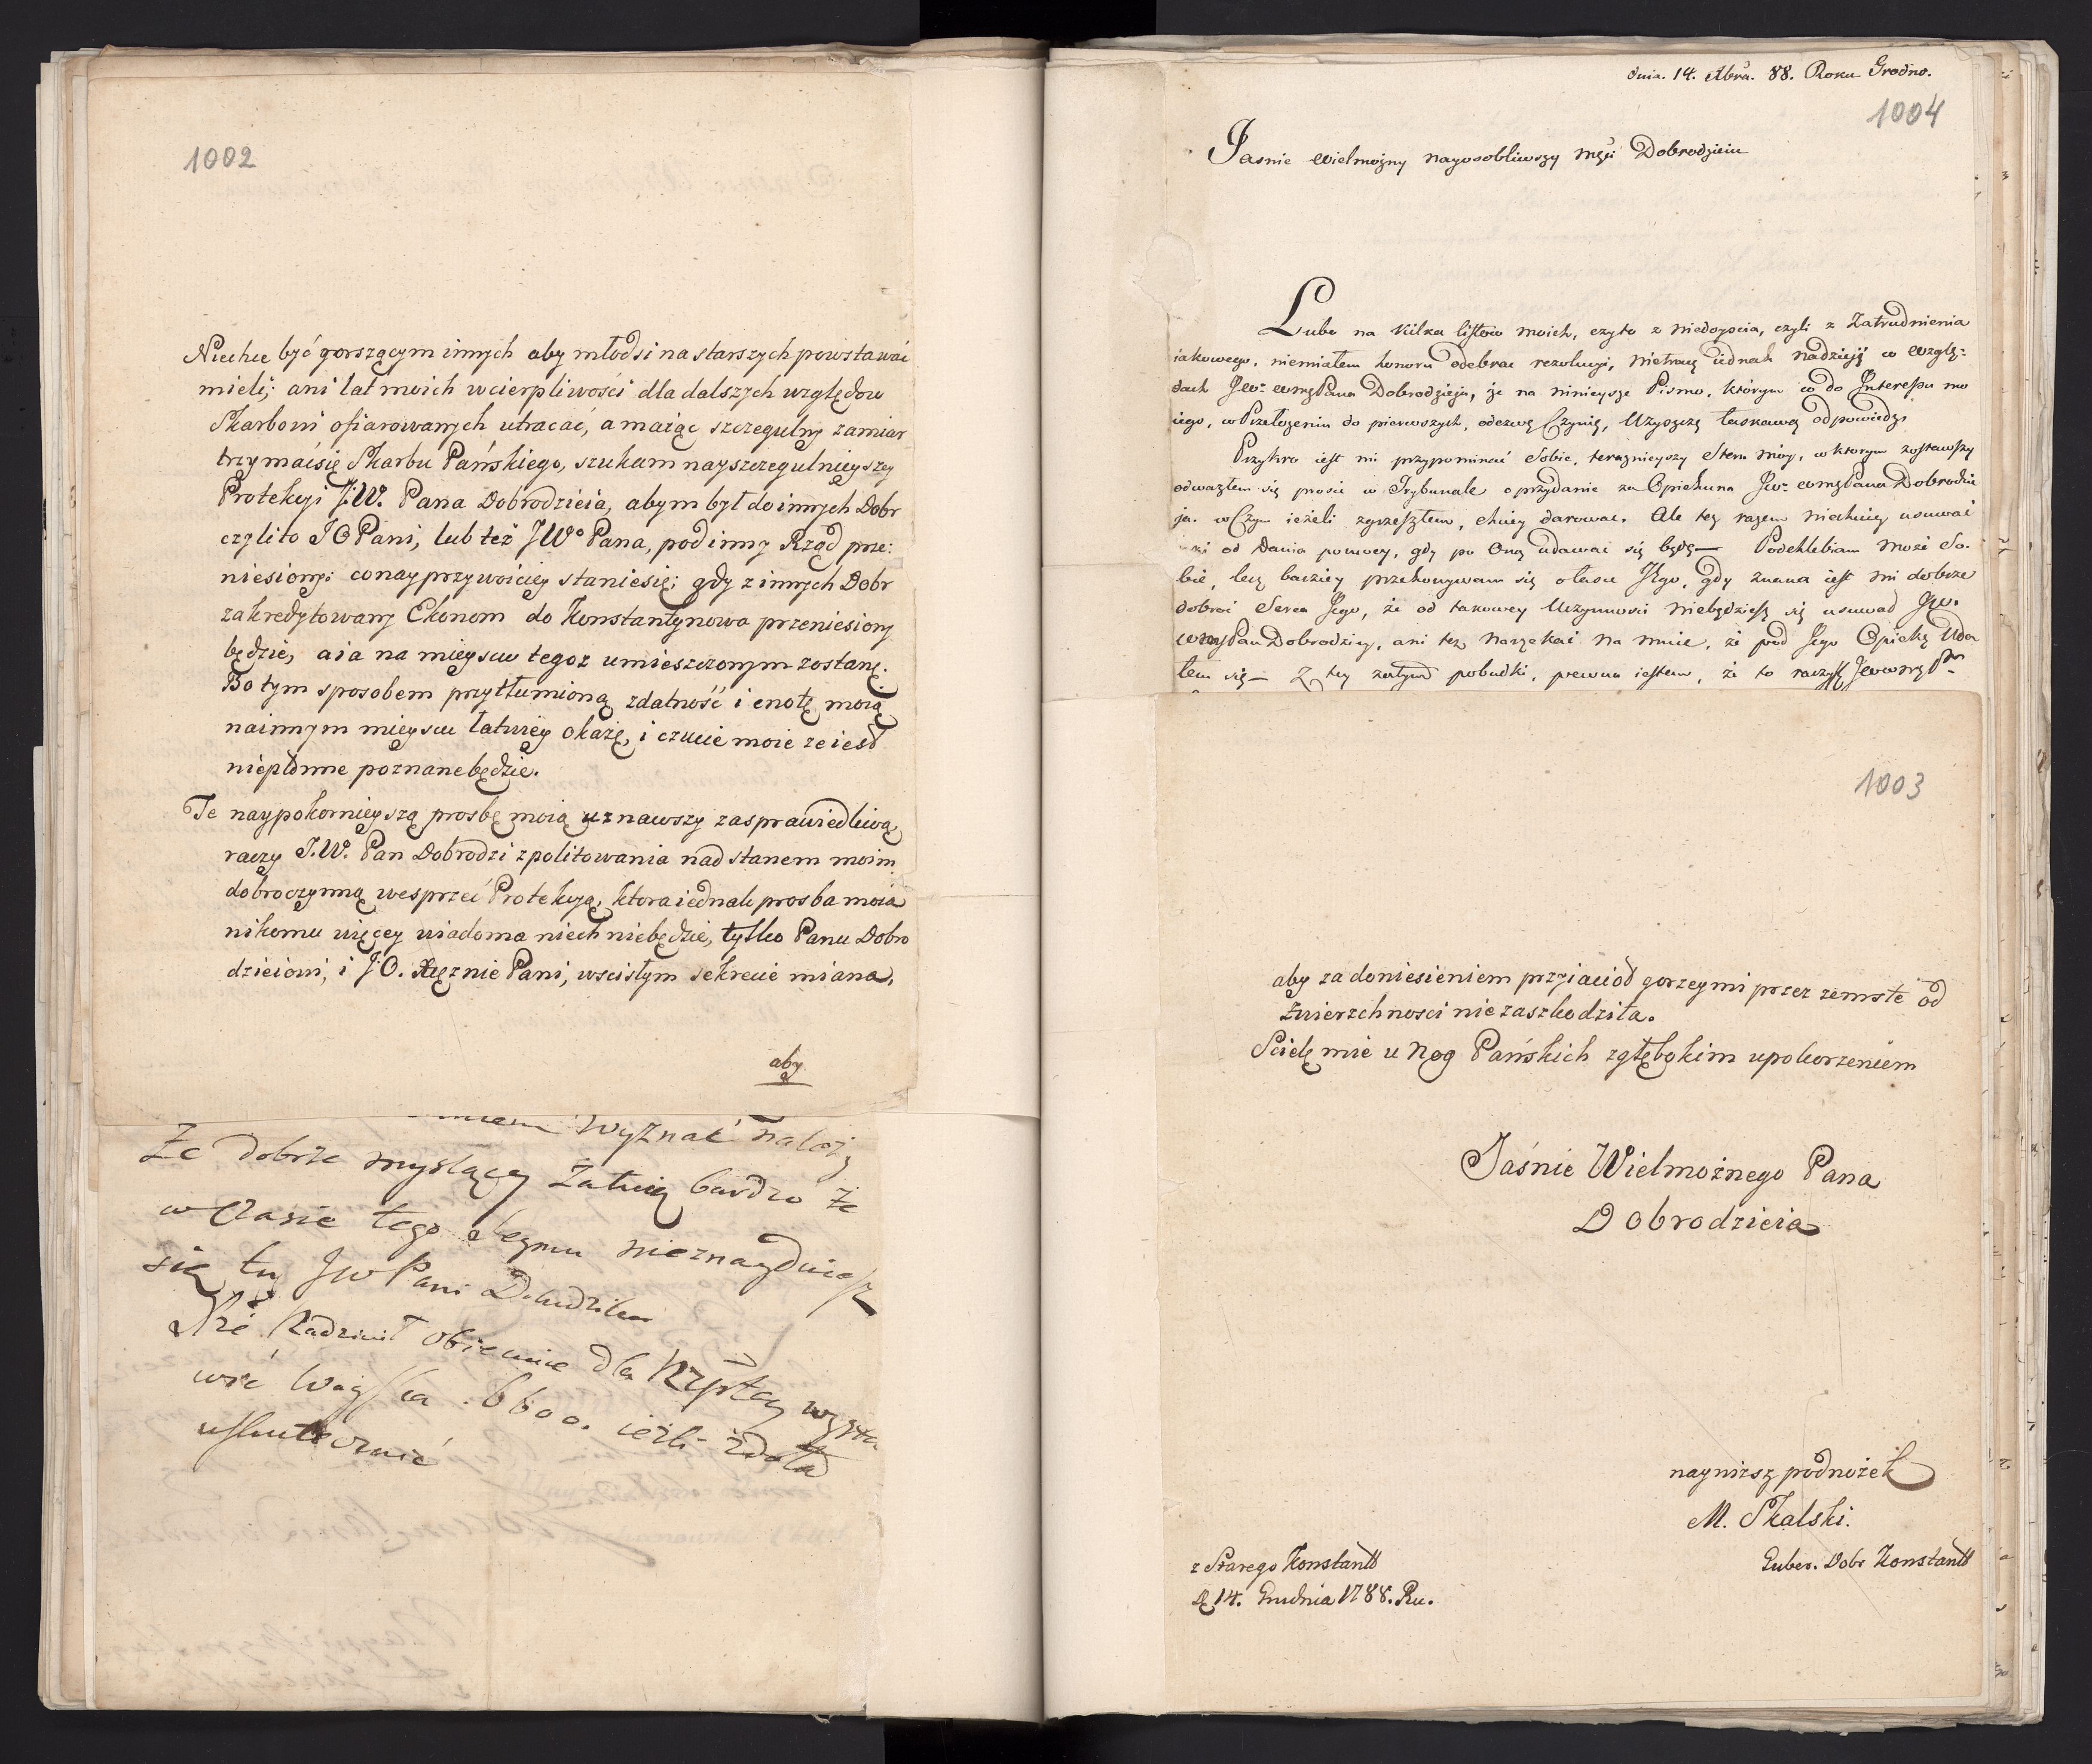 1002
Niechcę być gorszącym innych aby młodsi na starszych powstawać
mieli; ani lat moich w cierpliwości dla dalszych względow
Skarbowi ofiarowanych utracać, a maiąc szczegulny zamiar
trzymać się Skarbu Pańskiego, szukam nayszczegulnieyszey
Protekcyi J:W. Pana Dobrodzieia, abym był do innych Dobr
czyli to J O Pani, lub też JWo Pana, pod inny Rząd prze:
niesiony: co nayprzyzwoiciey stanie się; gdy z innych Dobr
zakredytowany Ekonom do Konstantynowa przeniesiony
będzie, a ia na mieyscu tegoz umieszczonym zostanę.
Bo tym sposobem przytłumioną zdatność i cnotę moią
na innym mieyscu łatwiey okażę, i czucie moie ze iest
niepłonne poznane będzie.
Te naypokornieyszą prosbę moią uznawszy za sprawiedliwą
raczy J.W. Pan Dobrodzi z politowania nad stanem moim
dobroczynną wesprzeć Protekcyą, ktora iednak prosba moia
nikomu więcey wiadoma niech niebędzie, tylko Panu Dobro
dzieiowi, i J:O. Xiężnie Pani, w scisłym sekrecie miana,
aby
wyznać należy
Ze dobrze myslący Załuią bardzo że
w czasie tego Seymu nieznayduiesz
się tu JW Pani Dobrodziku
Xże Radziwił obiecuie dla Rzpltey wysta
wić woyska 6600. ieżli zdoła
uskutecznić
dnia. 14. Xbra. 88. Roku Grodno.
1004
Jasnie Wielmożny nayosobliwszy mgści Dobrodzieiu
Lubo na kilka listow moich, czyto z niedoyscia, czyli z Zatrudnienia
iakowego, niemiałem honoru odebrac rezolucyi, nietracę iednak nadzieję w wzglę-
dach JW. wmgPana Dobrodzieja, że na ninieysze Pismo, którym co do Interessu mo
iego, w Przełożeniu do pierwszych, odezwę Czynię, Uzyszczę łaskawą odpowiedz.
Przykro iest mi przypominać Sobie, teraznieyszy Stan moy, w ktorym zostawszy
odwazyłem się prosic w Trybunale o przydanie za Opiekuna JW. wmgPana Dobrodzie
ja. w Czym ieżeli zgrzeszyłem, chciey darowac. Ale tez razem niechciey usuwać
od Dania pomocy, gdy po Oną udawać się będę — Podchlebiam może So-
bie, lecz bardziey przekonywam się o łasce Jego, gdy znana iest mi dobrze
dobroć Serca Jego, że od takowey Uczynnosci niebędziesz się usuwad JW.
wmgPan Dobrodziey, ani tez narzekać na mnie, że pod Jego Opiekę Uda
łem się — Z tey zatym pobudki, pewna iestem, że to raczysz JWwmg Pn
1003
aby za doniesieniem przyiaciod gorzey mi przez zemstę od
Zwierzchnosci nie zaszkodziła.
Scielę mie u Nog Pańskich z głębokim upokorzeniem
Jaśnie Wielmożnego Pana
Dobrodzieia
nayniższy podnożek
M. Skalski.
Guber. Dobr Konstantt
z Starego Konstantt
D 14. Grudnia 1788. Ru.